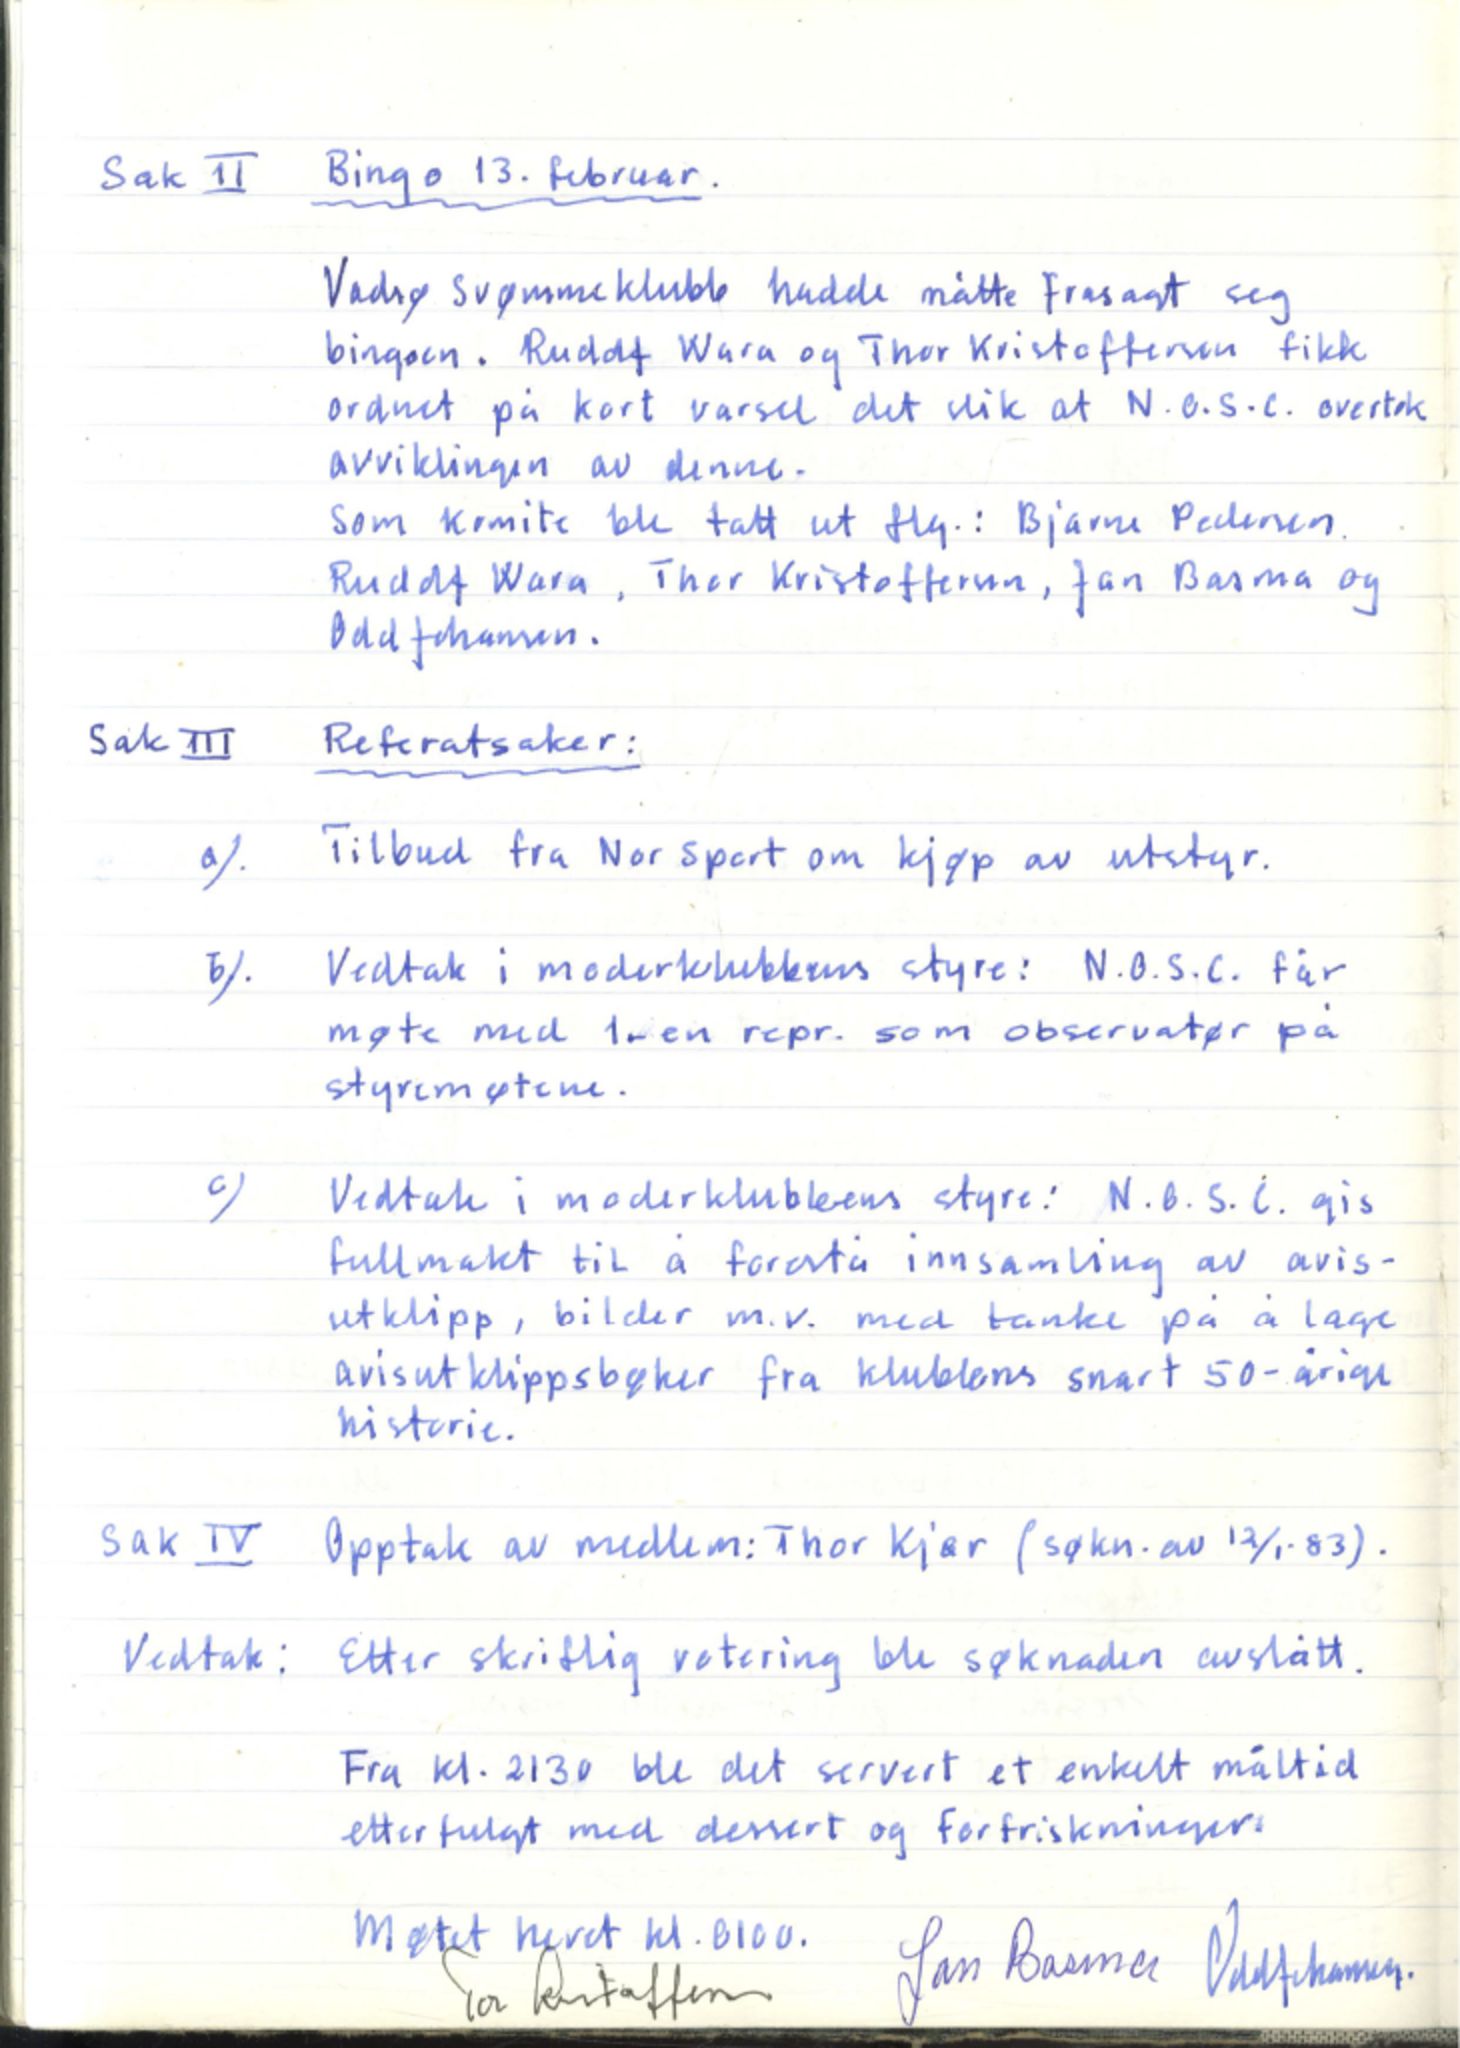 Sak II Bingo 13. februar.
Vadsø Svømmeklubb hadde måtte frasagt seg
bingoen. Rudolf Wara og Thor Kristoffersen fikk
ordnet på kort varsel det slik at N.O.S.C. overtok
avviklingen av denne.
Som komite ble tatt ut flg.: Bjarne Pedersen,
Rudolf Wara, Thor Kristoffersen, Jan Basma og
Odd Johansen.
Sak III Referatsaker:
a). Tilbud fra Nor Sport om kjøp av utstyr.
b). Vedtak i moderklubbens styre: N.O.S.C. får
møte med 1-en repr. som observatør på
styremøtene.
c) Vedtak i moderklubbens styre: N.O.S.C. gis
fullmakt til å forestå innsamling av avis-
utklipp, bilder m.v. med tanke på å lage
avisutklippsbøker fra klubbens snart 50-årige
historie.
Sak IV Opptak av medlem: Thor Kjær (søkn. av 12/1-83).
Vedtak: Etter skriftlig votering ble søknaden avslått.
Fra kl. 2130 ble det servert et enkelt måltid
etterfulgt med dessert og forfriskninger.
Møtet hevet kl. 0100.
Tor Kristoffersen Jan Basma Odd Johansen.